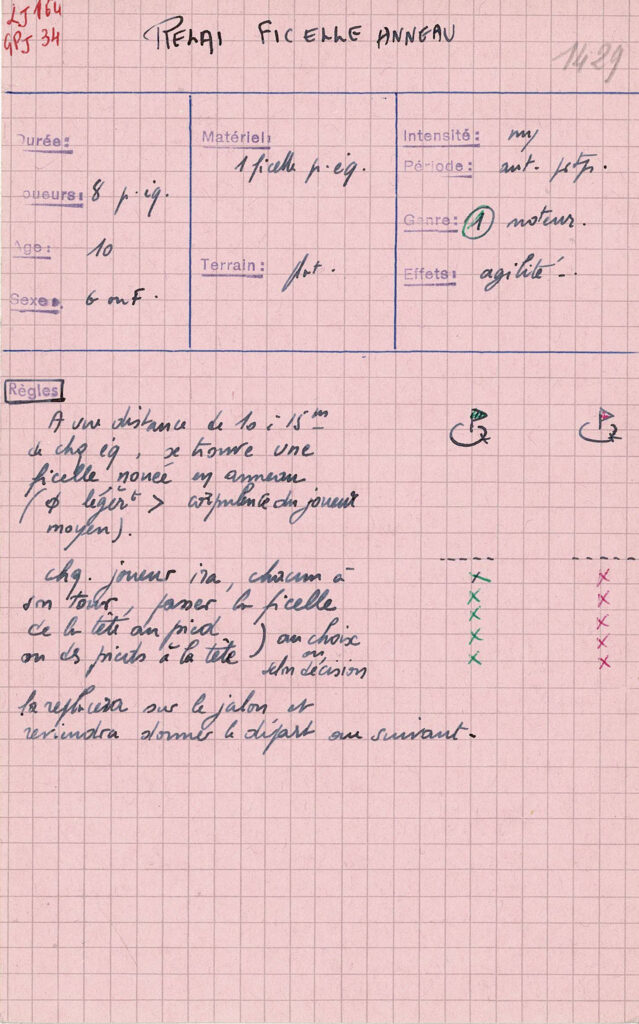 LJ 164
GPJ 34
RELAI FICELLE ANNEAU
1429
Durée:
Joueurs: 8 p. éq.
Age: 10
Sexe: G ou F.
Matériel:
1 ficelle p. éq.
Terrain: plat.
Intensité: my
Période: aut. ptps.
Genre: 1 moteur.
Effets: agilité -.
Règles
A une distance de 10 à 15 m
de chq éq, se trouve une
ficelle nouée en anneau
(φ légèrt > corpulence du joueur
moyen).
chq. joueur ira, chacun à
son tour, passer la ficelle
de la tête au pied ) au choix
ou des pieds à la tête ou
seln décision
la replacera sur le jalon et
reviendra donner le départ au suivant.